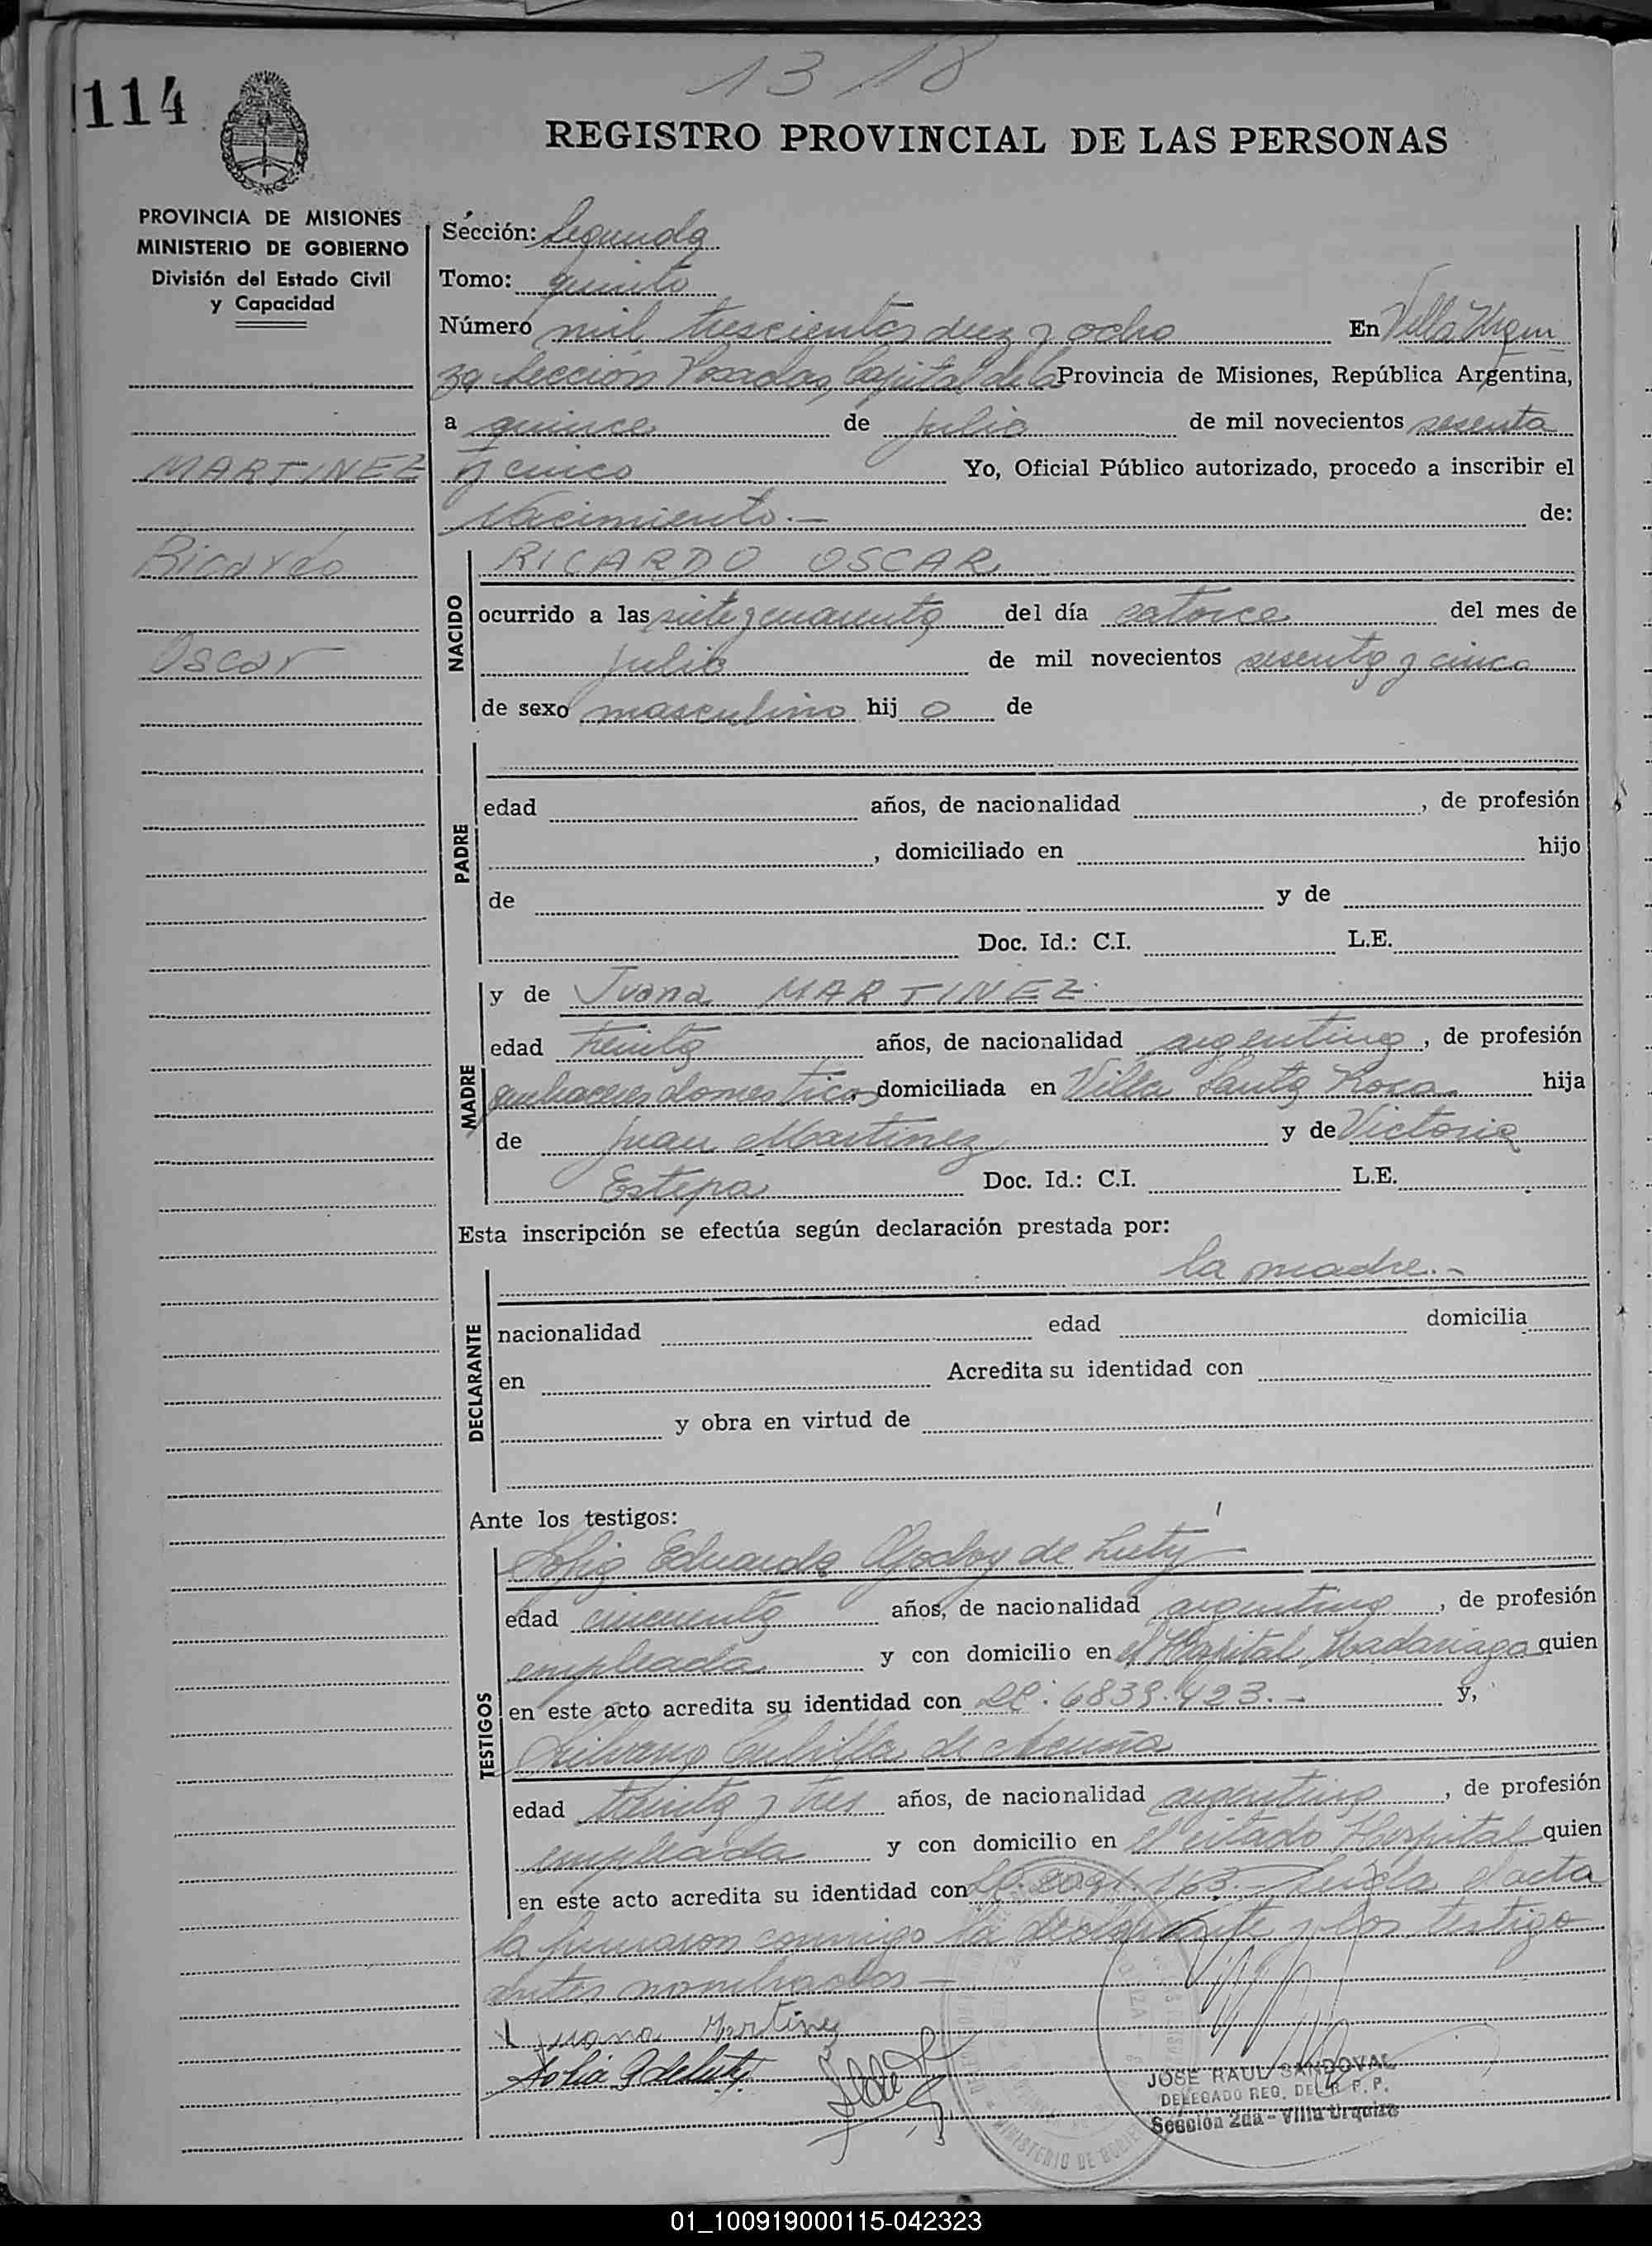 1318
114
REGISTRO PROVINCIAL DE LAS PERSONAS
PROVINCIA DE MISIONES
MINISTERIO DE GOBIERNO
División del Estado Civil
y Capacidad
MARTINEZ
Ricardo
Oscar
Sección: Segunda
Tomo: quinto
Número mil trescientos diez y ocho En Villa Urqui
za Sección Posadas, Capital de la Provincia de Misiones, República Argentina,
a quince de julio de mil novecientos sesenta
y cinco Yo, Oficial Público autorizado, procedo a inscribir el
Nacimiento.— de:
NACIDO
RICARDO OSCAR
ocurrido a las siete y cuarenta del día catorce del mes de
julio de mil novecientos sesenta y cinco
de sexo masculino hij o de
PADRE
edad años, de nacionalidad , de profesión
, domiciliado en hijo
de y de
Doc. Id.: C.I. L.E.
MADRE
y de Juana MARTINEZ.
edad treinta años, de nacionalidad argentina, de profesión
quehaceres domesticos domiciliada en Villa Santa Rosa hija
de Juan Martinez y de Victoria
Estepa Doc. Id.: C.I. L.E.
Esta inscripción se efectúa según declaración prestada por:
DECLARANTE
la madre.-
nacionalidad edad domicilia
en Acredita su identidad con
y obra en virtud de
Ante los testigos:
TESTIGOS
Sofia Eduarda Godoy de
edad cincuenta años, de nacionalidad argentina, de profesión
empleada y con domicilio en el Hospital Madariaga quien
en este acto acredita su identidad con LC: 6839.423.- y,
Cubilla de Acuña
edad treinta y tres años, de nacionalidad argentina, de profesión
empleada y con domicilio en el citado Hospital quien
en este acto acredita su identidad con 163.- Leida el acta
la firmaron conmigo la declarante y los testigo
antes nombrados —
Juana Martinez
JOSE RAUL SANDOVAL
DELEGADO REG. DEL R. P. P.
Sección 2da - Villa Urquiza
01_100919000115-042323